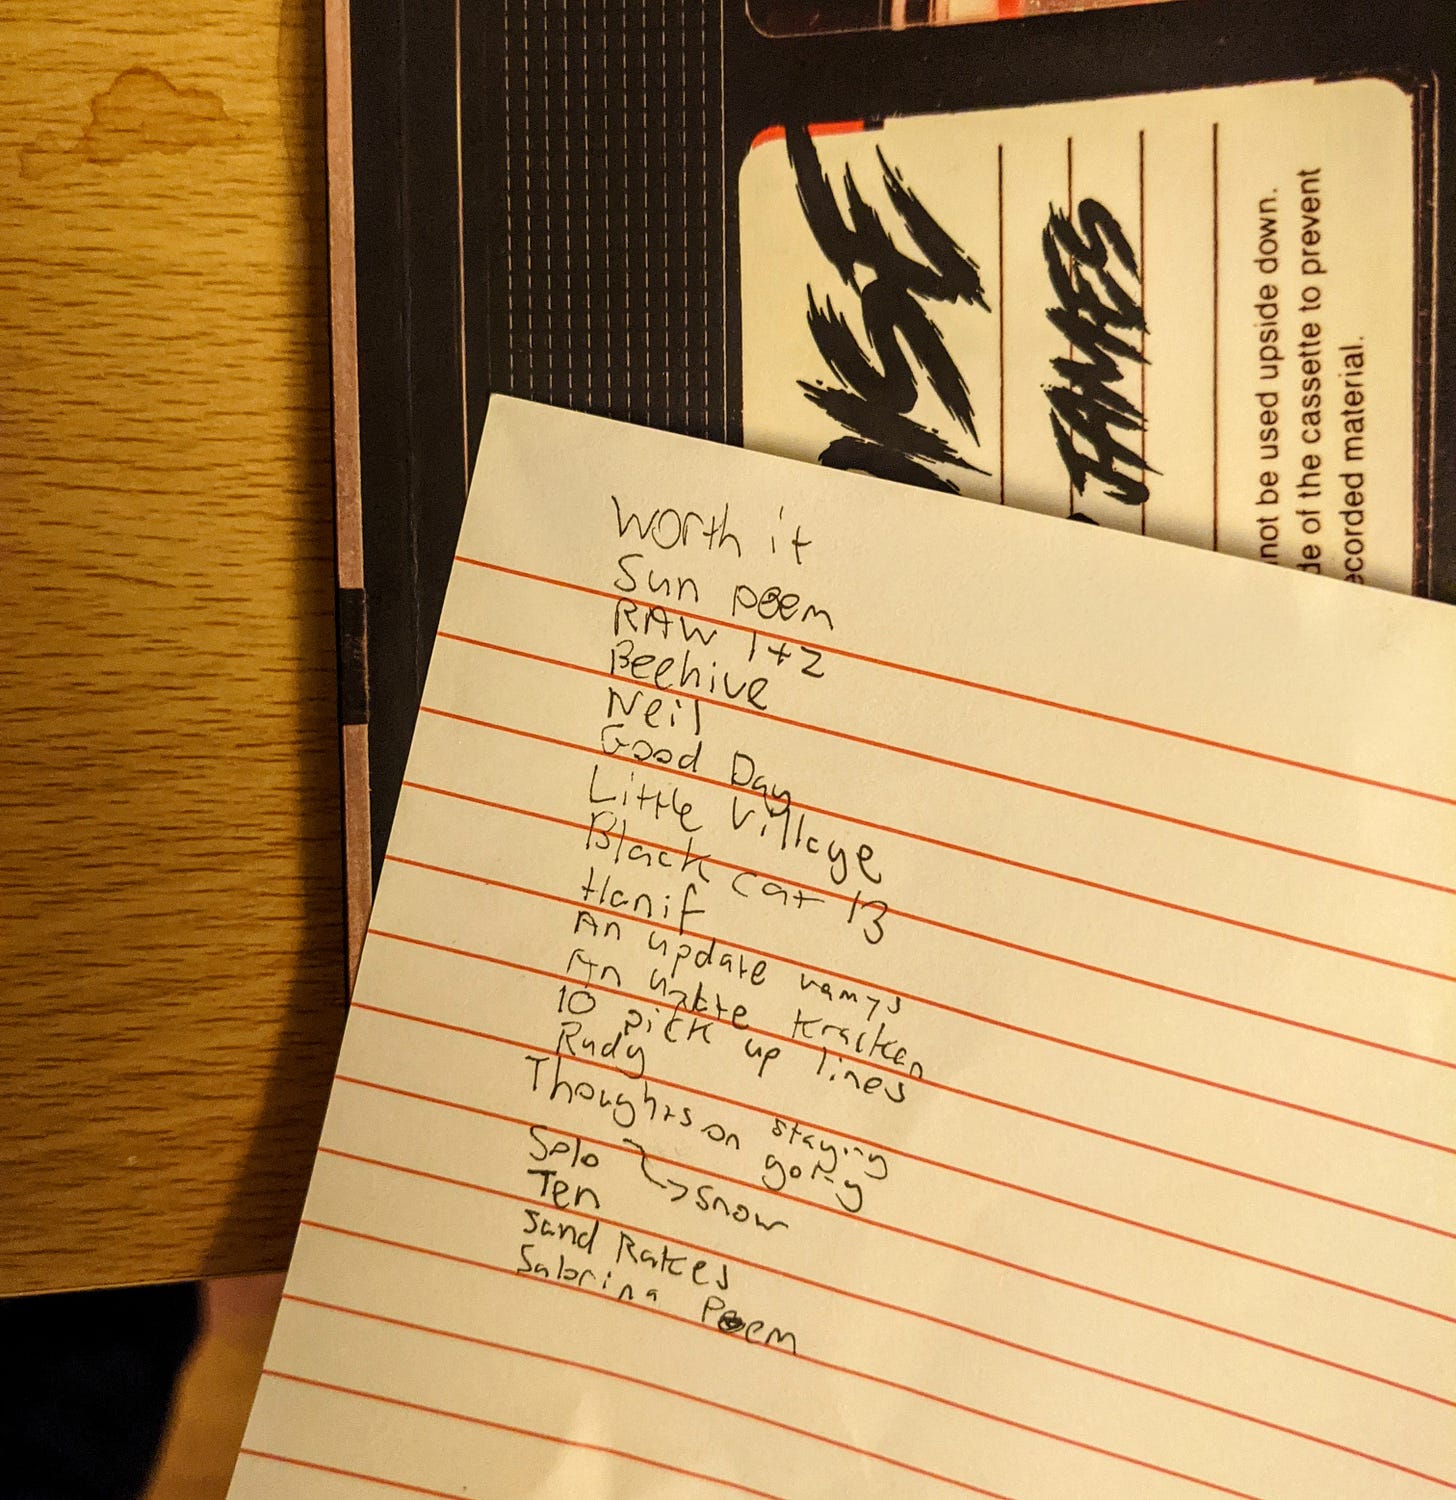 JAMES
not be used upside down.
de of the cassette to prevent
ecorded material.
Worth it
Sun poem
RAW 1+2
Beehive
Neil
Good Day
Little Village
Black cat 13
Hanif
An update
An Kracken
10 pick up lines
Rudy
Thoughts on staying
going
Solo → Snow
Ten
Sand Rakes
Sabrina Poem